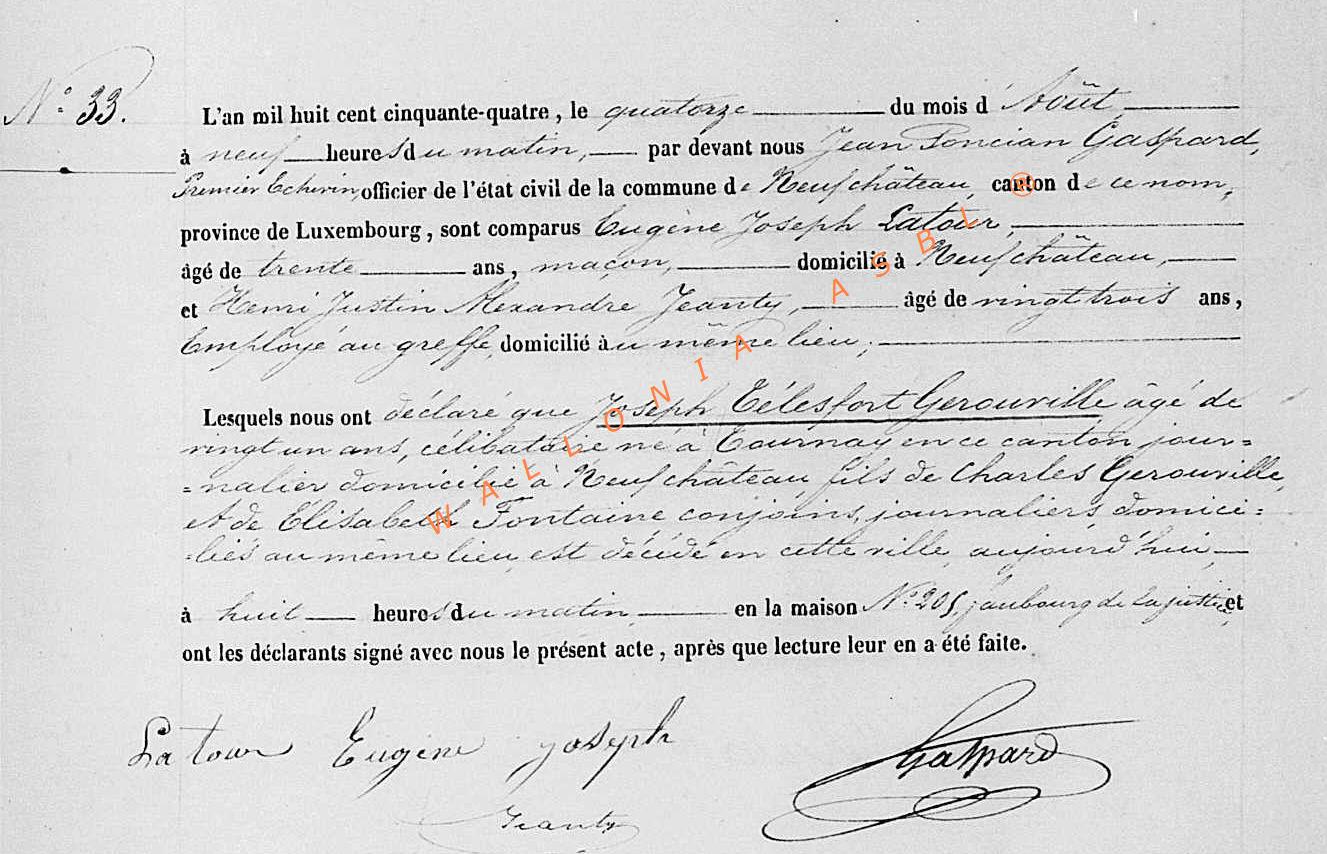 N° 33.
L'an mil huit cent cinquante-quatre, le quatorze du mois d'Août
à neuf heures du matin, par devant nous Jean Poncian Gaspard,
Premier Echevin, officier de l'état civil de la commune de Neufchâteau, canton de ce nom,
province de Luxembourg, sont comparus Eugène Joseph Latour,
âgé de trente ans, maçon, domicilié à Neufchâteau,
et Henri Justin Alexandre Jeanty, âgé de vingt trois ans,
Employé au greffe, domicilié au même lieu;
Lesquels nous ont déclaré que Joseph Télesfort Gerouville âgé de
vingt un ans, célibataire né à Tournay en ce canton jour=
=nalier domicilié à Neufchâteau, fils de Charles Gerouville,
et de Elisabeth Fontaine conjoins, journaliers, domici=
=liés au même lieu, est décédé en cette ville, aujourd'hui
à huit heures du matin en la maison N° 205 faubourg de la justice, et
ont les déclarants signé avec nous le présent acte, après que lecture leur en a été faite.
Latour Eugène joseph
Gaspard
Jeanty
WALLONIA ASBL ®